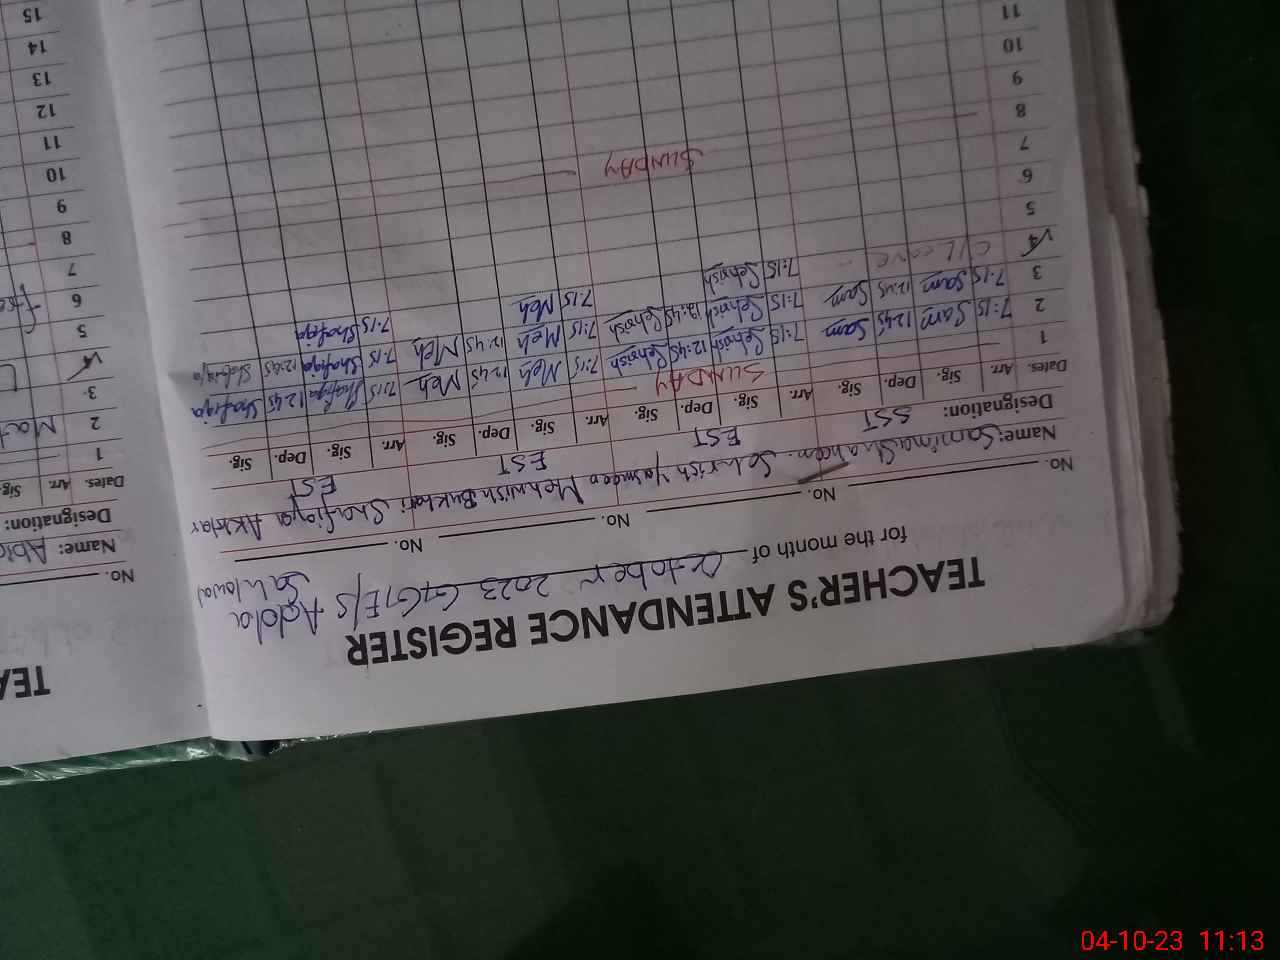 TEACHER'S ATTENDANCE REGISTER
for the month of October 2023 GGE/S Adda
Sahowal
No. No. No. No.
Name: Samina Shaheen. Sehrish Yasmeen Mehwish Bukhari Shafiqa Akhtar
Designation: SST EST EST EST
Dates. Arr. Sig. Dep. Sig. Arr. Sig. Dep. Sig. Arr. Sig. Dep. Sig. Arr. Sig. Dep. Sig.
1 SUNDAY
2 7:15 Sam 12:45 Sam 7:15 Sehrish 12:45 Sehrish 7:15 Meh 12:45 Meh 7:15 Shafiqa 12:45 Shafiqa
3 7:15 Sam 12:45 Sam 7:15 Sehrish 12:45 Sehrish 7:15 Meh 12:45 Meh 7:15 Shafiqa 12:45 Shafiqa
4 C/Leave 7:15 Sehrish 7:15 Meh 7:15 Shafiqa
5
6
7
8 SUNDAY
9
10
11
TEA
No.
Name: Abid
Designation:
Dates. Arr. Sig.
1
2 Mat
3
4 L
5
6
7
8
9
10
11
12
13
14
15
04-10-23 11:13